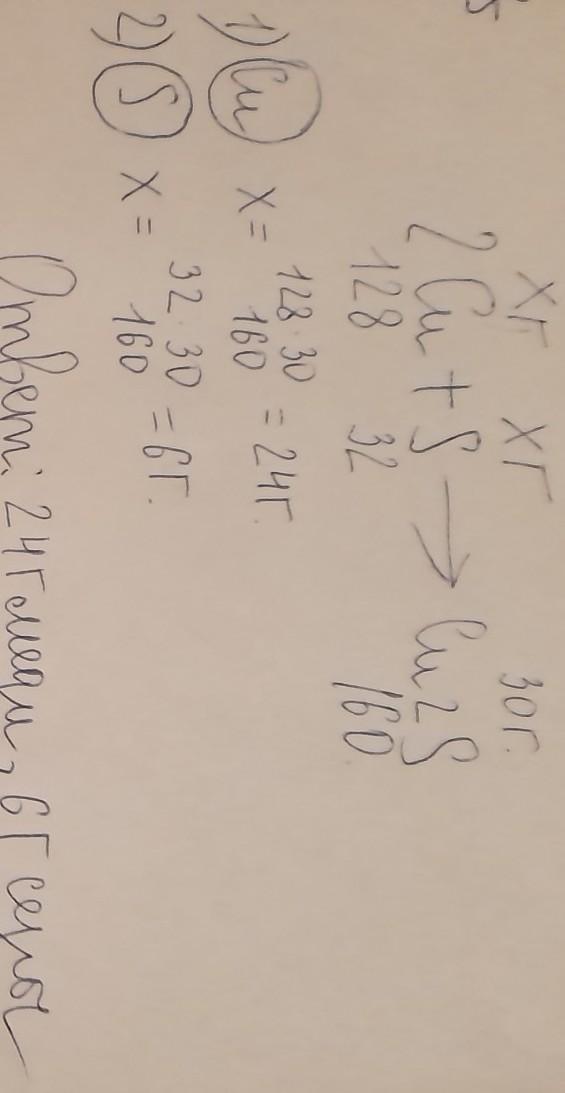 5
xг xг 30г.
2Cu + S → Cu2S
128 32 160
1) Cu x = 128·30
160 = 24г.
2) S x = 32·30
160 = 6г.
Ответ: 24г меди, 6г серы